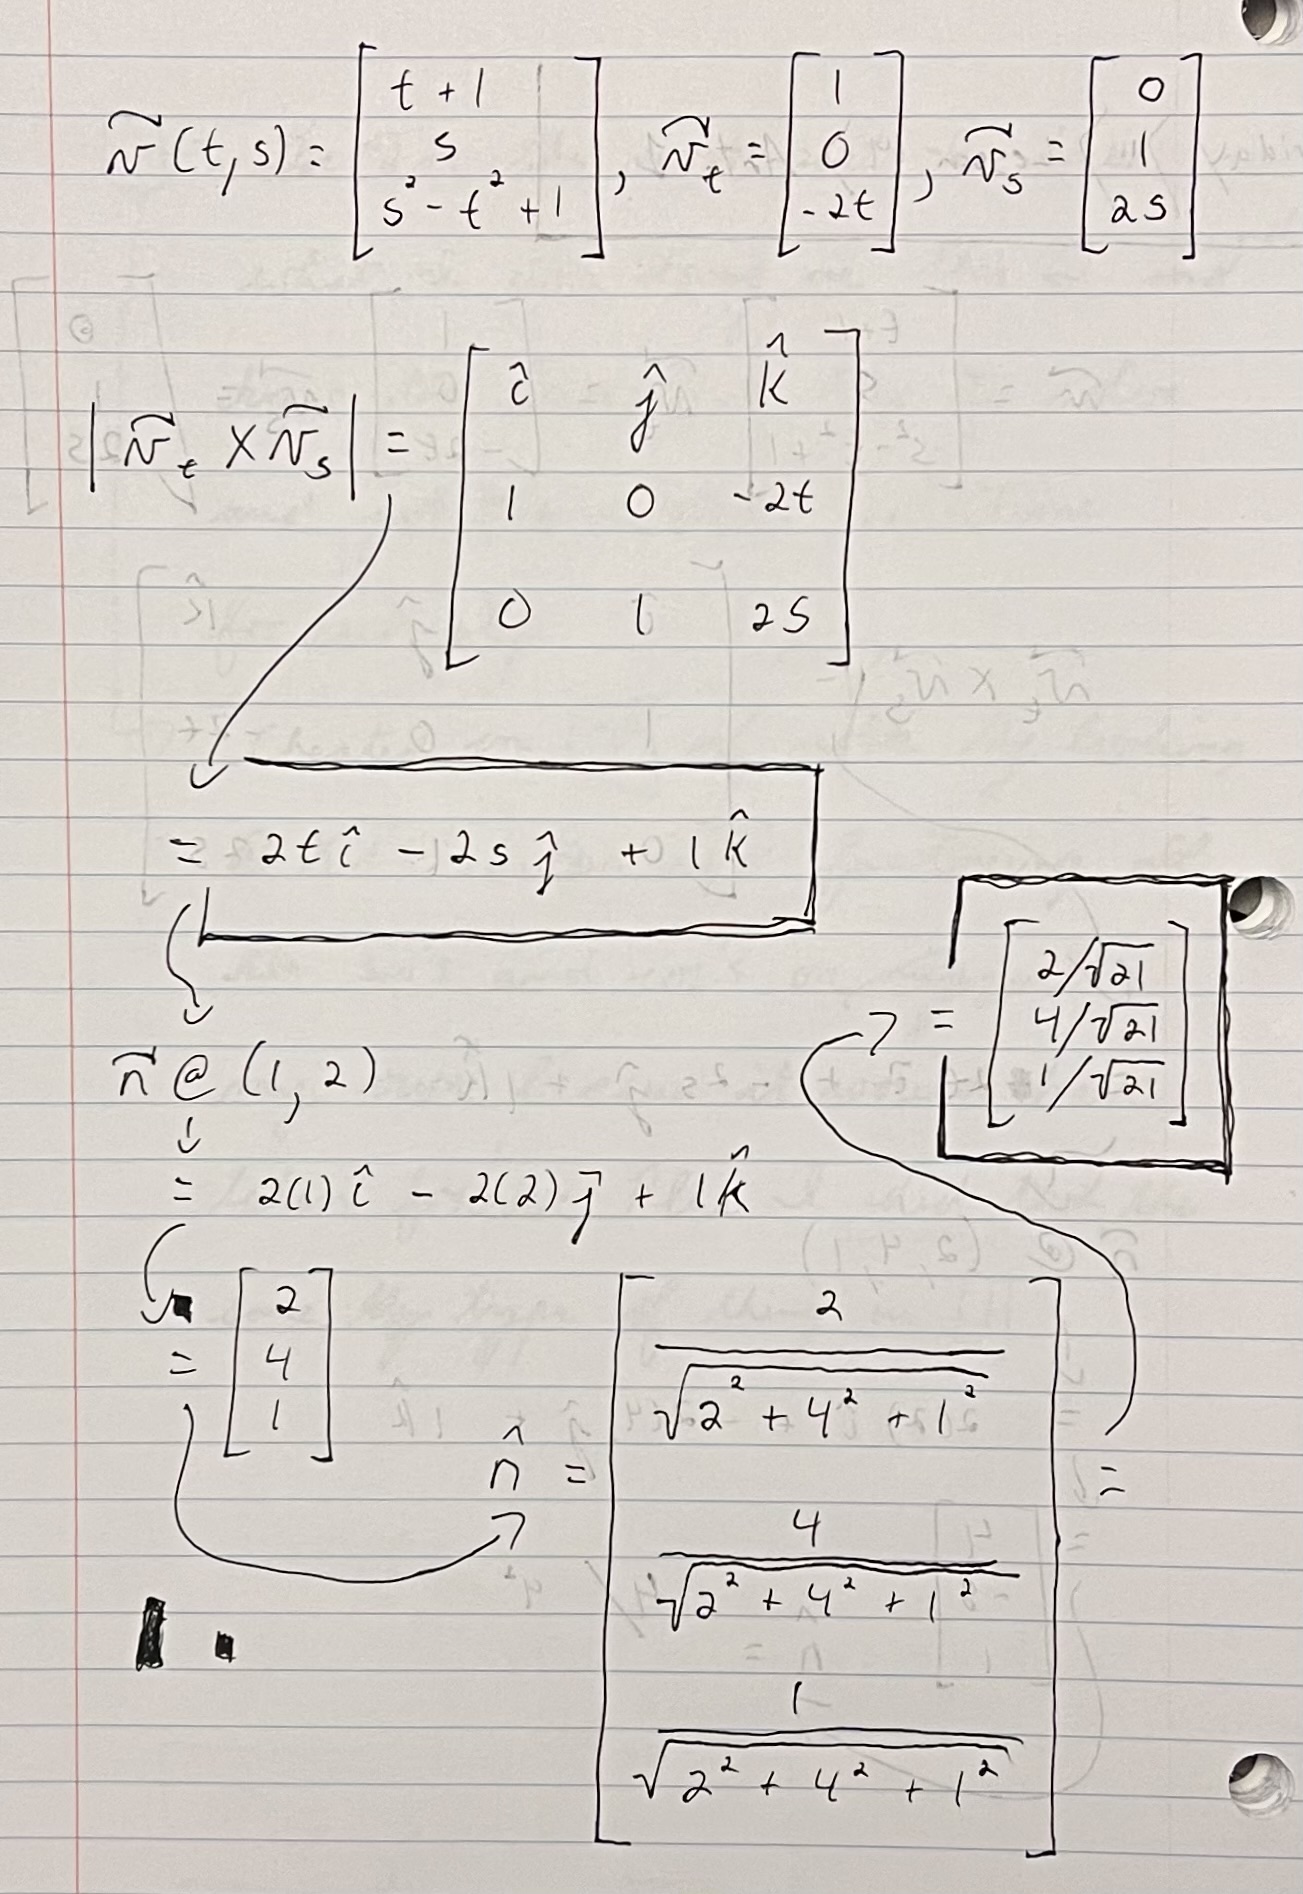 ṽ(t,s) = [t + 1; s; s² - t² + 1], ṽ_t = [1; 0; -2t], ṽ_s = [0; 1; 2s]
|ṽ_t × ṽ_s| = [î ĵ k̂; 1 0 -2t; 0 1 2s]
= 2t î - 2s ĵ + 1 k̂
ñ @ (1, 2)
= 2(1) î - 2(2) j̄ + 1 k̂
= [2; 4; 1]
n̂ = [2/√(2² + 4² + 1²); 4/√(2² + 4² + 1²); 1/√(2² + 4² + 1²)] =
= [2/√21; 4/√21; 1/√21]